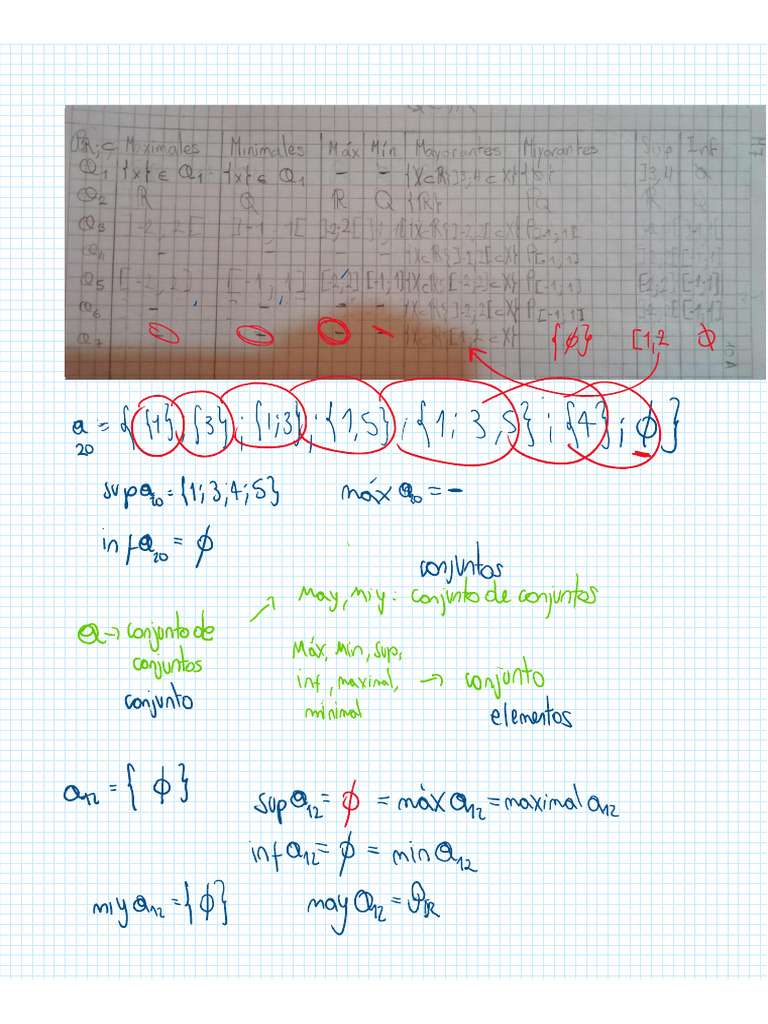 P_R; ⊂ Maximales Minimales Máx Mín Mayorantes Miyorantes Sup Inf
Q1 {x} ∈ Q1 {x} ∈ Q1 - - {X⊂R/]3,4⊂X} {∅} ]3,4 ∅
Q2 R Q R Q {R} P_Q R Q
Q3 ]-2,2[ ]-1,1[ ]-2,2[ ]-1,1[ {X⊂R/]-2,2[⊂X} P]-1,1[
{X⊂R/]-2,2[⊂X} P[-1,1]
Q5 [-2,2] [-1,1] [-2,2] [-1,1] {X⊂R/[-2,2]⊂X} P[-1,1] [-2,2] [-1,1]
Q6 - - - - {X⊂R/]-2,2[⊂X} P[-1,1]
Q7 - - - - [1,2⊂X} {ϕ} [1,2 ϕ
a20 = {{1};{3};{1;3};{1,5};{1;3,5};{4};ϕ}
sup a20 = {1;3;4;5} máx a20 = -
inf a20 = ϕ
conjuntos
May, Miy: conjunto de conjuntos
a → conjunto de
conjuntos
conjunto
Máx, Min, sup,
inf, maximal, → conjunto
minimal
elementos
a12 = { ϕ }
sup a12 = ϕ = máx a12 = maximal a12
inf a12 = ϕ = min a12
miy a12 = {ϕ} may a12 = P_R